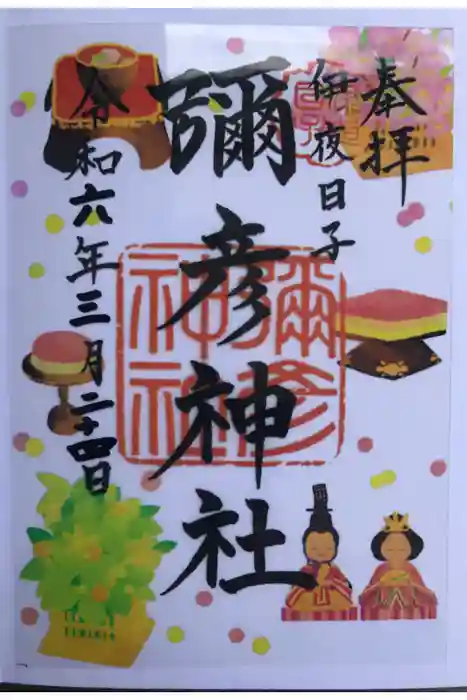 奉拝
伊夜日子
彌彦神社
令和六年三月二十四日
彌彦
神社